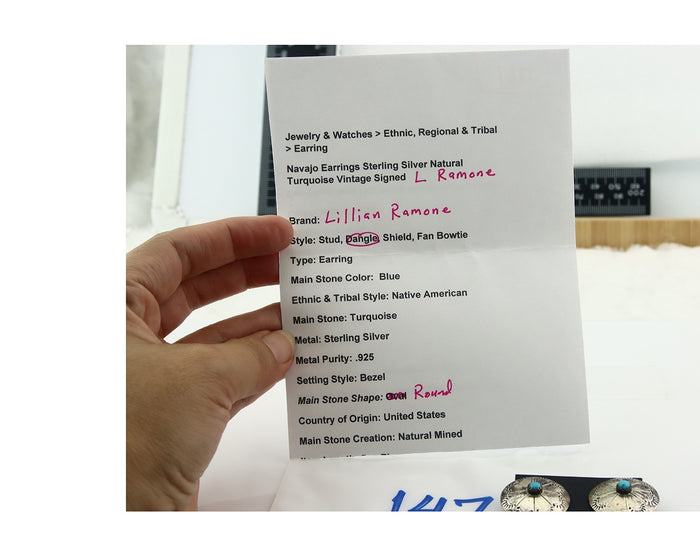 Jewelry & Watches > Ethnic, Regional & Tribal
> Earring
Navajo Earrings Sterling Silver Natural
Turquoise Vintage Signed L Ramone
Brand: Lillian Ramone
Style: Stud, Dangle, Shield, Fan Bowtie
Type: Earring
Main Stone Color: Blue
Ethnic & Tribal Style: Native American
Main Stone: Turquoise
Metal: Sterling Silver
Metal Purity: .925
Setting Style: Bezel
Main Stone Shape: Oval Round
Country of Origin: United States
Main Stone Creation: Natural Mined
147